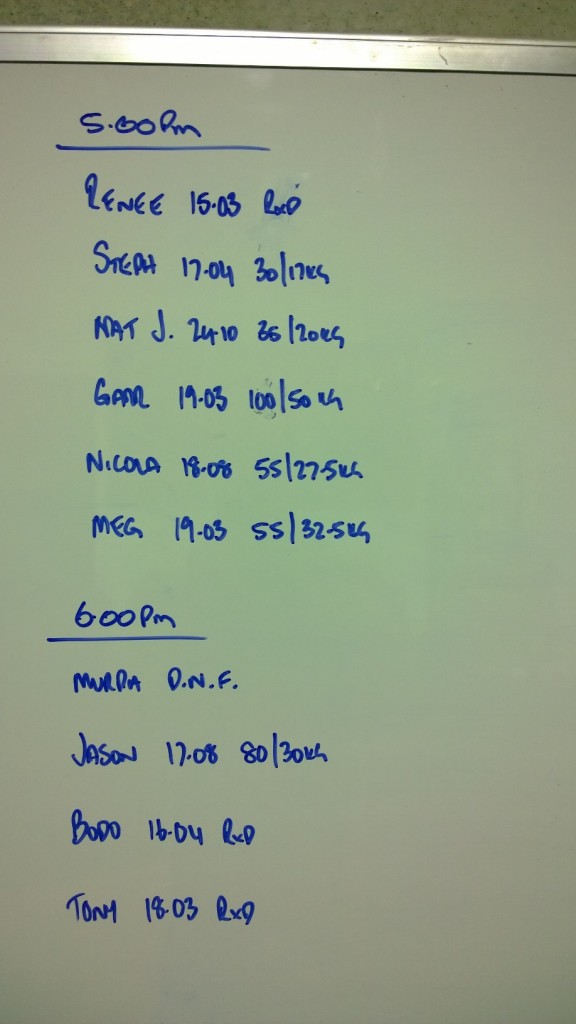 5.00Pm
RENEE 15.03 RxD
STEPH 17.04 30/17KG
MAT J. 24.10 35/20KG
19.03 100/50KG
NICOLA 18.08 55/27.5KG
MEG 19.03 55/32.5KG
6.00Pm
D.N.F.
JASON 17.08 80/30KG
BODO 16.04 RxD
TONY 18.03 RxD